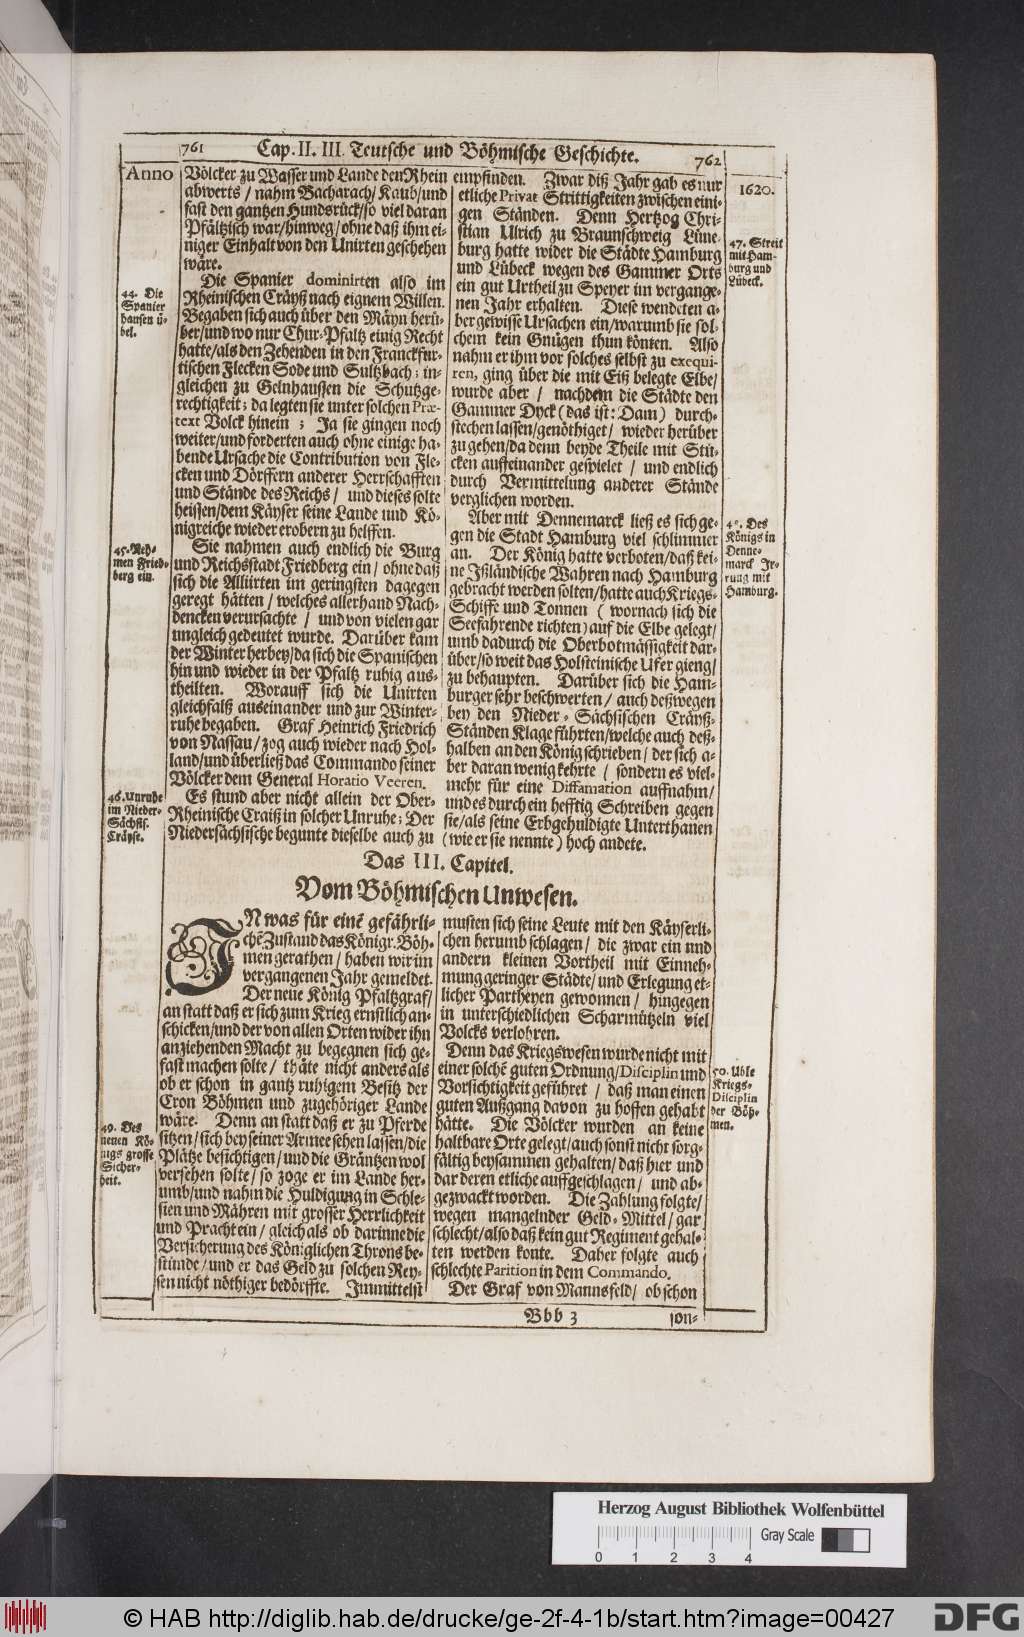 761 Cap. II. III. Teutsche und Böhmische Geschichte. 762
Anno
1620.
Völcker zu Wasser und Lande den Rhein
abwerts / nahm Bacharach / Kaub / und
fast den gantzen Hundsrück / so viel daran
Pfältzisch war / hinweg / ohne daß ihm ei-
niger Einhalt von den Unirten geschehen
wäre.
44. Die
Spanier
hausen ü-
bel.
Die Spanier dominirten also im
Rheinischen Cräyß nach eignem Willen.
Begaben sich auch über den Mäyn herü-
ber / und wo nur Chur-Pfaltz einig Recht
hatte / als den Zehenden in den Franckfur-
tischen Flecken Sode und Sultzbach; in-
gleichen zu Gelnhaussen die Schutzge-
rechtigkeit; da legten sie unter solchen Præ-
text Volck hinein; Ja sie gingen noch
weiter / und forderten auch ohne einige ha-
bende Ursache die Contribution von Fle-
cken und Dörffern anderer Herrschafften
und Stände des Reichs / und dieses solte
heissen / dem Käyser seine Lande und Kö-
nigreiche wieder erobern zu helffen.
45. Neh-
men Fried-
berg ein.
Sie nahmen auch endlich die Burg
und Reichsstadt Friedberg ein / ohne daß
sich die Alliirten im geringsten dagegen
geregt hätten / welches allerhand Nach-
dencken verursachte / und von vielen gar
ungleich gedeutet wurde. Darüber kam
der Winter herbey / da sich die Spanischen
hin und wieder in der Pfaltz ruhig aus-
theilten. Worauff sich die Unirten
gleichfalß auseinander und zur Winter-
ruhe begaben. Graf Heinrich Friedrich
von Nassau / zog auch wieder nach Hol-
land / und überließ das Commando seiner
Völcker dem General Horatio Veeren.
46. Unruhe
im Nieder-
Sächsis.
Cräyse.
Es stund aber nicht allein der Ober-
Rheinische Craiß in solcher Unruhe; Der
Niedersächsische begunte dieselbe auch zu
empfinden. Zwar diß Jahr gab es nur
etliche Privat Strittigkeiten zwischen eini-
gen Ständen. Denn Hertzog Chri-
stian Ulrich zu Braunschweig Lüne-
burg hatte wider die Städte Hamburg
und Lübeck wegen des Gammer Orts
ein gut Urtheil zu Speyer im vergange-
nen Jahr erhalten. Diese wendeten a-
ber gewisse Ursachen ein / warumb sie sol-
chem kein Gnügen thun könten. Also
nahm er ihm vor solches selbst zu exequi-
ren, ging über die mit Eiß belegte Elbe /
wurde aber / nachdem die Städte den
Gammer Dyck (das ist: Dam) durch-
stechen lassen / genöthiget / wieder herüber
zu gehen / da denn beyde Theile mit Stü-
cken auffeinander gespielet / und endlich
durch Vermittelung anderer Stände
verglichen worden.
47. Streit
mit Ham-
burg und
Lübeck.
Aber mit Dennemarck ließ es sich ge-
gen die Stadt Hamburg viel schlimmer
an. Der König hatte verboten / daß kei-
ne Ißländische Wahren nach Hamburg
gebracht werden solten / hatte auch Kriegs-
Schiffe und Tonnen (wornach sich die
Seefahrende richten) auf die Elbe gelegt /
umb dadurch die Oberbotmässigkeit dar-
über / so weit das Holsteinische Ufer gieng /
zu behaupten. Darüber sich die Ham-
burger sehr beschwerten / auch deßwegen
bey den Nieder-Sächsischen Cräyß-
Ständen Klage führten / welche auch deß-
halben an den König schrieben / der sich a-
ber daran wenig kehrte / sondern es viel-
mehr für eine Diffamation auffnahm /
und es durch ein hefftig Schreiben gegen
sie / als seine Erbgehuldigte Unterthanen
(wie er sie nennte) hoch andete.
Des
Königs in
Denne-
marck Ir-
rung mit
Hamburg.
Das III. Capitel.
Vom Böhmischen Unwesen.
IN was für einē gefährli-
chē Zustand das Königr. Böh-
men gerathen / haben wir im
vergangenen Jahr gemeldet.
Der neue König Pfaltzgraf /
an statt daß er sich zum Krieg ernstlich an-
schicken / und der von allen Orten wider ihn
anziehenden Macht zu begegnen sich ge-
fast machen solte / thäte nicht anders als
ob er schon in gantz ruhigem Besitz der
Cron Böhmen und zugehöriger Lande
wäre. Denn an statt daß er zu Pferde
sitzen / sich bey seiner Armee sehen lassen / die
Plätze besichtigen / und die Gräntzen wol
versehen solte / so zoge er im Lande her-
umb / und nahm die Huldigung in Schle-
sien und Mähren mit grosser Herrlichkeit
und Pracht ein / gleich als ob darinne die
Versicherung des Königlichen Throns be-
stünde / und er das Geld zu solchen Rey-
sen nicht nöthiger bedörffte. Immittelst
49. Des
neuen Kö-
nigs grosse
Sicher-
heit.
musten sich seine Leute mit den Käyserli-
chen herumb schlagen / die zwar ein und
andern kleinen Vortheil mit Einneh-
mung geringer Städte / und Erlegung et-
licher Partheyen gewonnen / hingegen
in unterschiedlichen Scharmützeln viel
Volcks verlohren.
Denn das Kriegswesen wurde nicht mit
einer solchē guten Ordnung / Disciplin und
Vorsichtigkeit geführet / daß man einen
guten Außgang davon zu hoffen gehabt
hätte. Die Völcker wurden an keine
haltbare Orte gelegt / auch sonst nicht sorg-
fältig beysammen gehalten / daß hier und
dar deren etliche auffgeschlagen / und ab-
gezwackt worden. Die Zahlung folgte /
wegen mangelnder Geld-Mittel / gar
schlecht / also daß kein gut Regiment gehal-
ten werden konte. Daher folgte auch
schlechte Parition in dem Commando.
Der Graf von Mannsfeld / ob schon
50. Uble
Kriegs-
Disciplin
der Böh-
men.
Bbb 3 son-
Herzog August Bibliothek Wolfenbüttel
0 1 2 3 4 Gray Scale
© HAB http://diglib.hab.de/drucke/ge-2f-4-1b/start.htm?image=00427
DFG